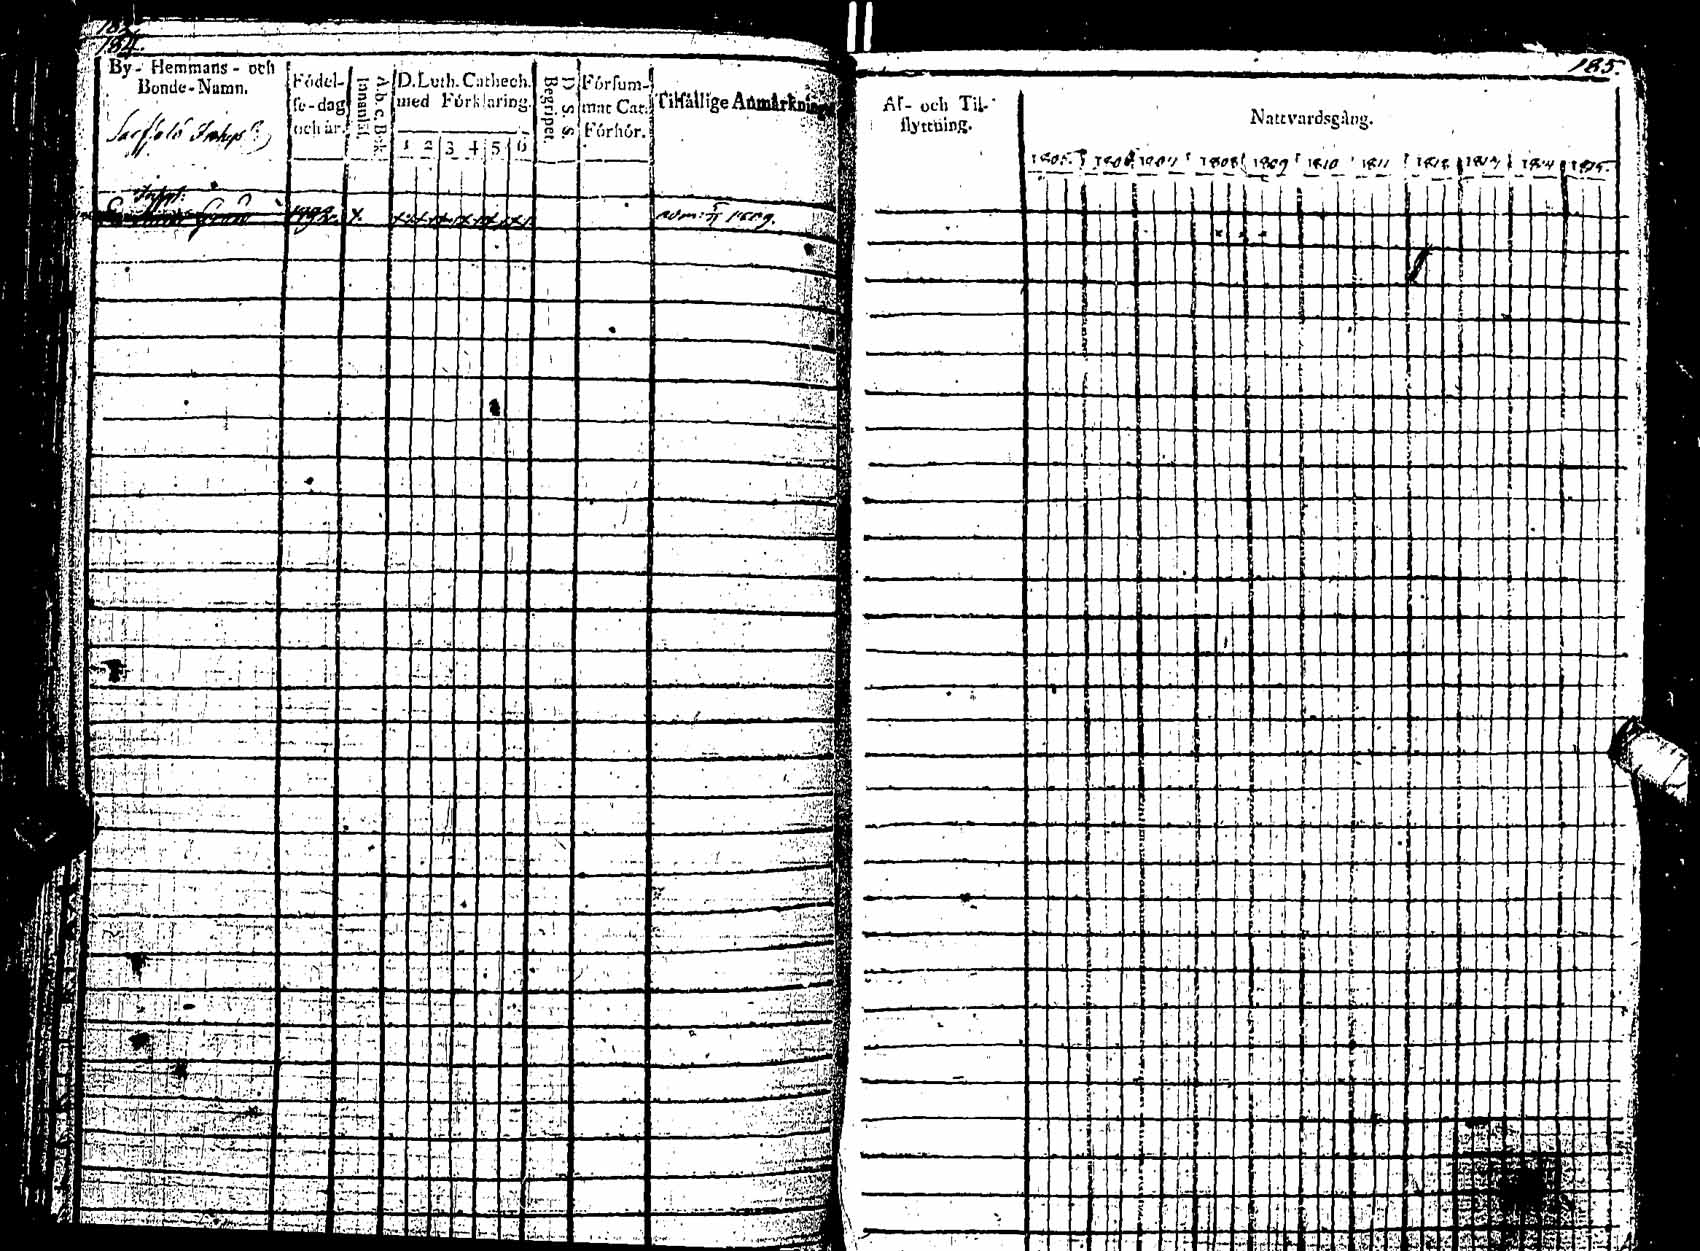 184.
By- Hemmans- och
Bonde-Namn.
Födel-
se-dag
och år.
A. b. c. Bok
Innantil.
D. Luth. Cathech.
med Förklaring.
1 2 3 4 5 6
D. S. S.
Begripet.
Försum-
mat Cat.
Förhör.
Tilfällige Anmärkning
185.
Af- och Til-
flyttning.
Nattvardsgång.
1805. 1806 1807 1808 1809 1810 1811 1812 1813 1814 1815.
1809.